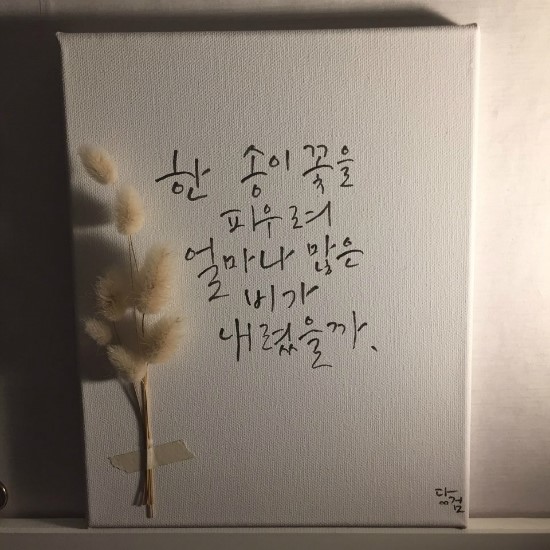 한 송이 꽃을
피우려
얼마나 많은
비가
내렸을까.